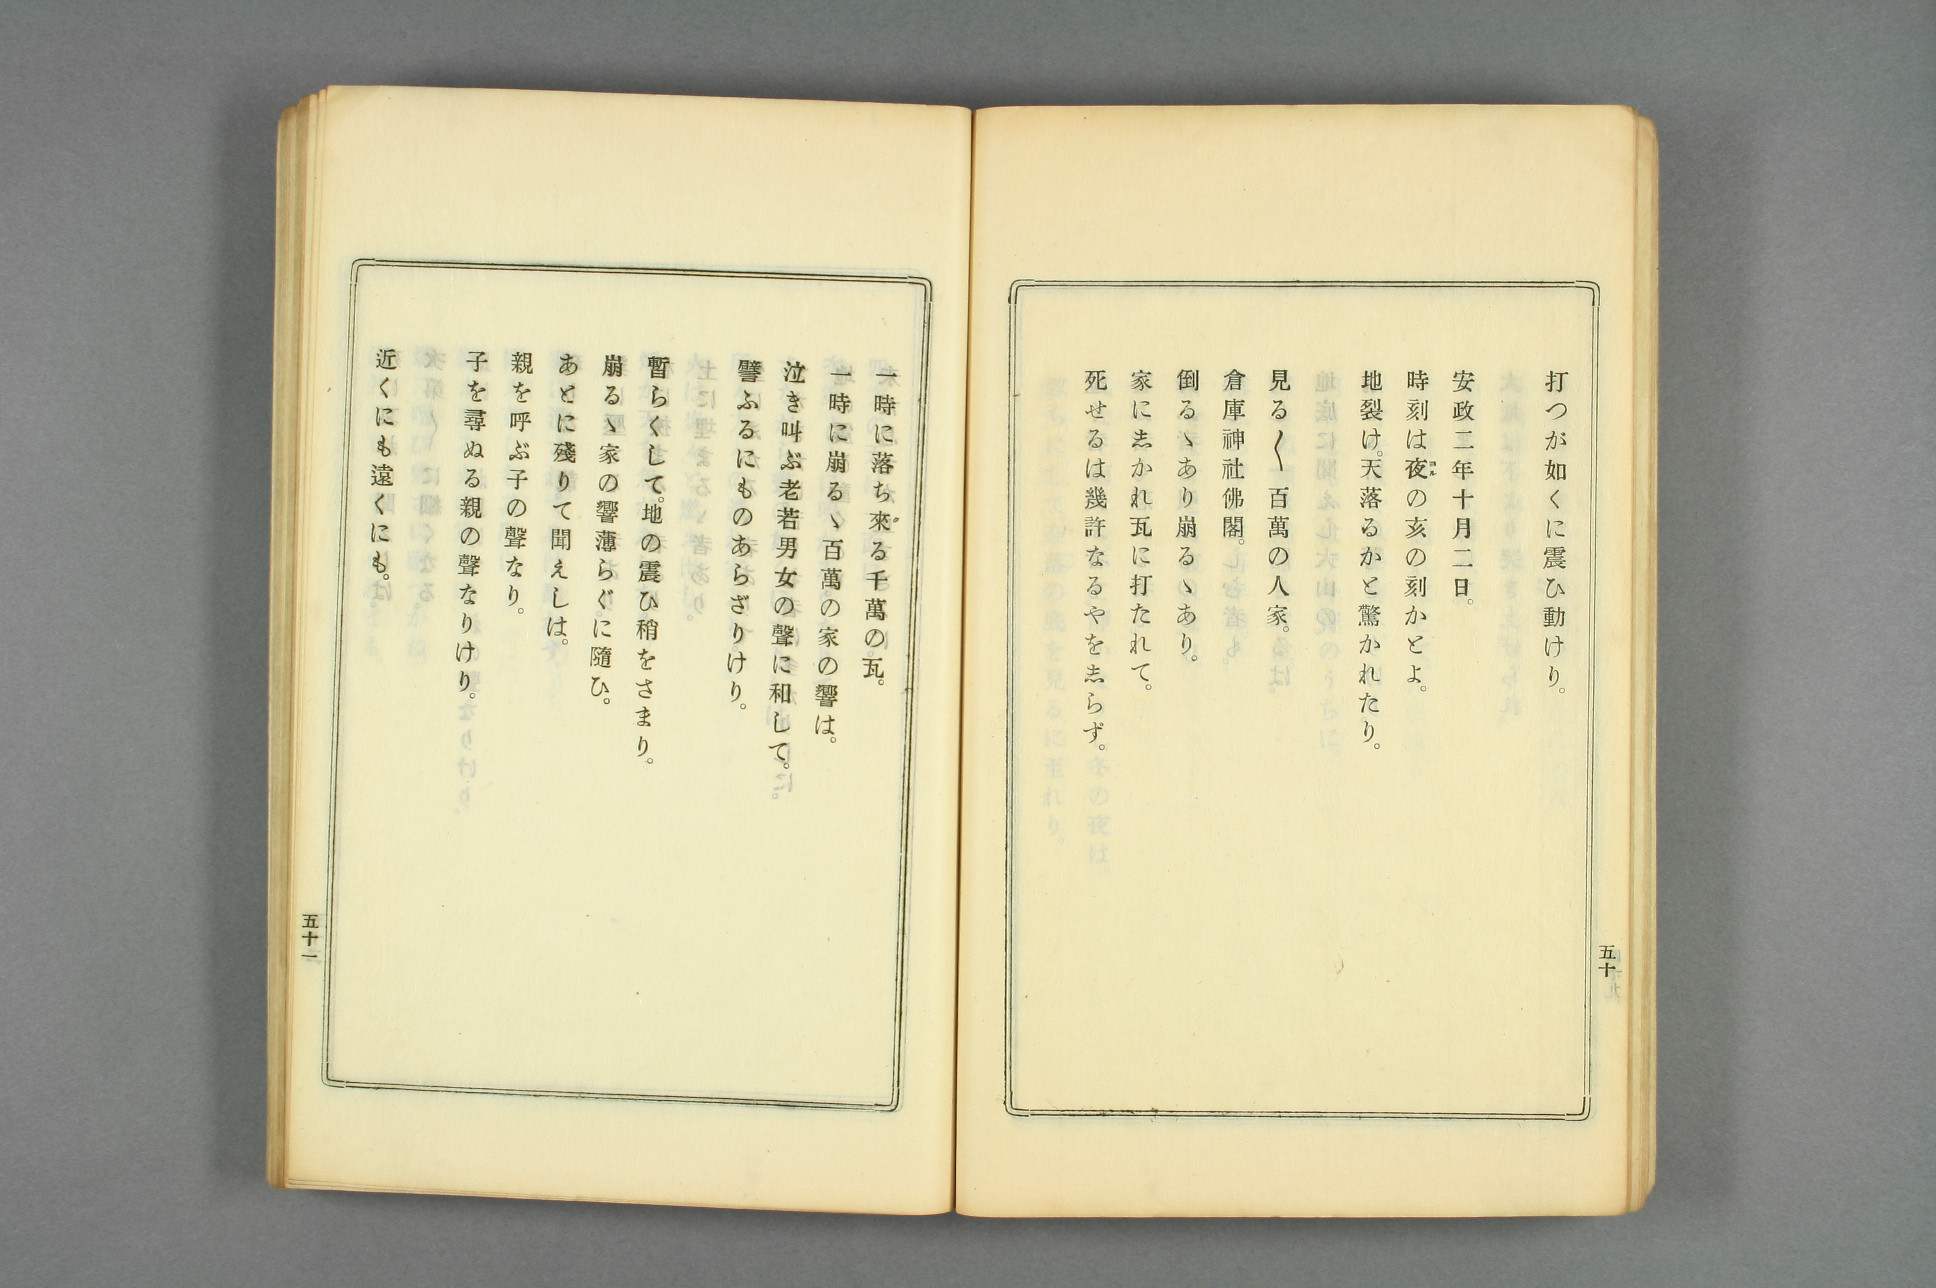 打つが如くに震ひ動けり。
安政二年十月二日。
時刻は夜の亥の刻かとよ。
地裂け。天落るかと驚かれたり。
見る〱百萬の人家。
倉庫神社佛閣。
倒るゝあり崩るゝあり。
家に志かれ瓦に打たれて。
死せるは幾許なるやを志らず。
五十
一時に落ち來る千萬の瓦。
一時に崩るゝ百萬の家の響は。
泣き叫ぶ老若男女の聲に和して。
譬ふるにものあらざりけり。
暫らくして。地の震ひ稍をさまり。
崩るゝ家の響薄らぐに隨ひ。
あとに殘りて聞えしは。
親を呼ぶ子の聲なり。
子を尋ぬる親の聲なりけり。
近くにも遠くにも。
五十一